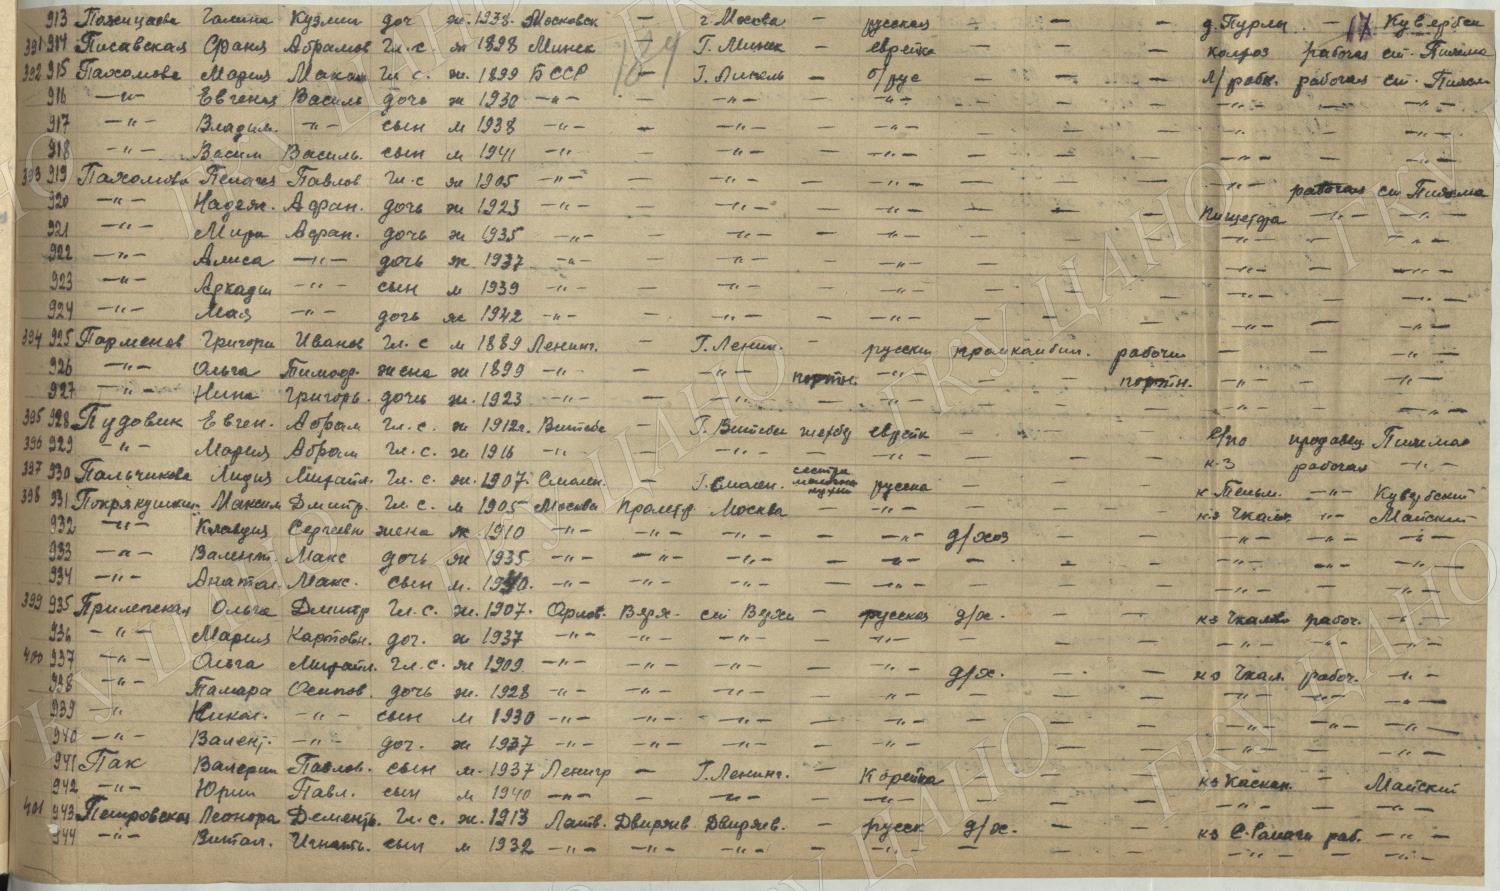 913 Паженцаева Галина Кузмин доч ж. 1938. Московск — г. Москва — русская — — — д. Пурлы — 17 Кувербск
391 914 Писавская Франя Абрамов Гл.с ж 1898 Минск — 184 Г. Минск — еврейка — — — колхоз рабочая ст. Пижма
392 915 Пахомова Мария Макам Гл с. ж. 1899 БССР — Г. — б/рус — — — Л/рабк. рабочая ст. Пижм
916 —"— Евгения Василь дочь ж 1930 —"— — —"— — —"— — — — —"— — —"—
917 —"— Владим. —"— сын м 1938 —"— — —"— — —"— — — — —"— — —"—
918 —"— Васили Василь. сын м 1941 —"— — —"— — —"— — — — —"— — —"—
393 919 Пахомова Пелагея Павлов Гл.с ж 1905 —"— — —"— — —"— — — — —"— рабочая ст Пижма
920 —"— Надеж. Афан. дочь ж 1923 —"— — —"— — —"— — — — Пищетра —"— —"—
921 —"— Мира Афан. дочь ж 1935 —"— — —"— — —"— — — — —"— — —"—
922 —"— Алиса —"— дочь ж 1937 —"— — —"— — —"— — — — —"— — —"—
923 —"— Аркади —"— сын м 1939 —"— — —"— — —"— — — — —"— — —"—
924 —"— Мая —"— дочь ж 1942 —"— — —"— — —"— — — — —"— — —"—
394 925 Парменов Григори Иванов Гл. с м 1889 Ленинг. — Г. Ленин. — русский промкомбин. рабочий — — —"—
926 —"— Ольга Тимоф. жена ж 1899 —"— — —"— портн. —"— — — портн. —"— — —"—
927 —"— Нина Григорь. дочь ж. 1923 —"— — —"— — —"— — — — —"— — —"—
395 928 Пудовик Евген. Абрам Гл. с. ж 1912г. Витебс — Г. Витебск еврейк — — — с/по продавец Пижма
396 929 —"— Мария Абрам Гл. с. ж 1916 —"— — —"— — —"— — — — к-з рабочая —"—
397 930 Пальчикова Лидия Михайл. Гл. с. ж. 1907. Смолен. — Г. Смолен. сестра молочная кухни русска — — — к —"— Кувербский
398 931 Покрякушкин. Максим Дмитр. Гл. с. м 1905 Москва Пролетр Москва — —"— — — — кз Чкалов. —"— Майский
932 —"— Клавдия Сергеевн жена ж 1910 —"— —"— —"— — —"— д/хоз — — —"— —"— —"—
933 —"— Валент Макс дочь ж 1935 —"— —"— —"— — —"— — — — —"— —"— —"—
934 —"— Анатол. Макс. сын м. 1940. —"— —"— —"— — —"— — — — —"— — —"—
399 935 Прилепская Ольга Дмитр Гл. с. ж. 1907. Орлов. ст — русская д/х. — — кз Чкалова рабоч. —"—
936 —"— Мария Карповн. доч. ж 1937 —"— —"— —"— — —"— — — — —"— —"— —"—
400 937 —"— Ольга Михайл. Гл. с. ж 1909 —"— —"— —"— — —"— д/х. — — кз Чкал. рабоч. —"—
938 —"— Тамара Осипов. дочь ж. 1928 —"— —"— —"— — —"— — — — —"— —"— —"—
939 —"— Никол. —"— сын м 1930 —"— —"— —"— — —"— — — — —"— —"— —"—
940 —"— Валент. —"— доч. ж 1937 —"— —"— —"— — —"— — — — —"— — —"—
941 Пак Валерии Павлов. сын м. 1937 Ленигр — Г. Ленинг. — Корейка — — — кз — Майский
942 —"— Юрий Павл. сын м 1940 —"— — —"— — —"— — — — —"— — —"—
401 943 Петровская Леонора Дементь. Гл. с. ж. 1913 Латв. Двирнев Двирнев. — русск д/х. — — кз раб. —"—
944 —"— Витал. Игнать. сын м 1932 —"— —"— —"— — —"— — — — —"— — —"—
ГКУ ЦАНО